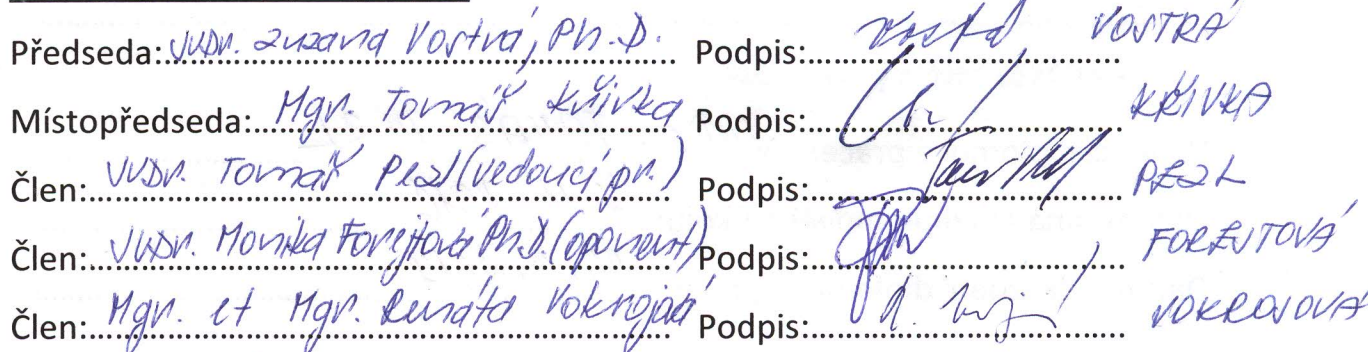 Předseda: JUDr. Zuzana Vostrá, Ph.D. Podpis: Vostrá VOSTRÁ
Místopředseda: Mgr. Tomáš Křivka Podpis: KŘIVKA
Člen: JUDr. Tomáš Pezl (vedoucí pr.) Podpis: PEZL
Člen: JUDr. Monika Forejtová Ph.D. (oponent) Podpis: FOREJTOVÁ
Člen: Mgr. et Mgr. Renáta Vokrojová Podpis: VOKROJOVÁ